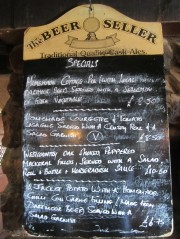 The BEER SELLER
Traditional Quality Cask Ales.
SPECIALS
HOMEMADE COTTAGE PIE (WITH LOCAL
BEEF SERVED WITH A SELECTION
OF FRESH VEGETABLES £8.50
HOMEMADE COURGETTE & TOMATO
SERVED WITH A CRUSTY ROLL &
SALAD GARNISH (V)
OAK SMOKED PEPPERED
MACKEREL FILLETS, SERVED WITH A SALAD
ROLL & BUTTER & HORSERADISH SAUCE £10.50
JACKET POTATO WITH A HOMEMADE
CHILLI CON CARNE FILLING (MADE FROM
DARTMOOR BEEF) SERVED WITH A
SALAD GARNISH £6.75